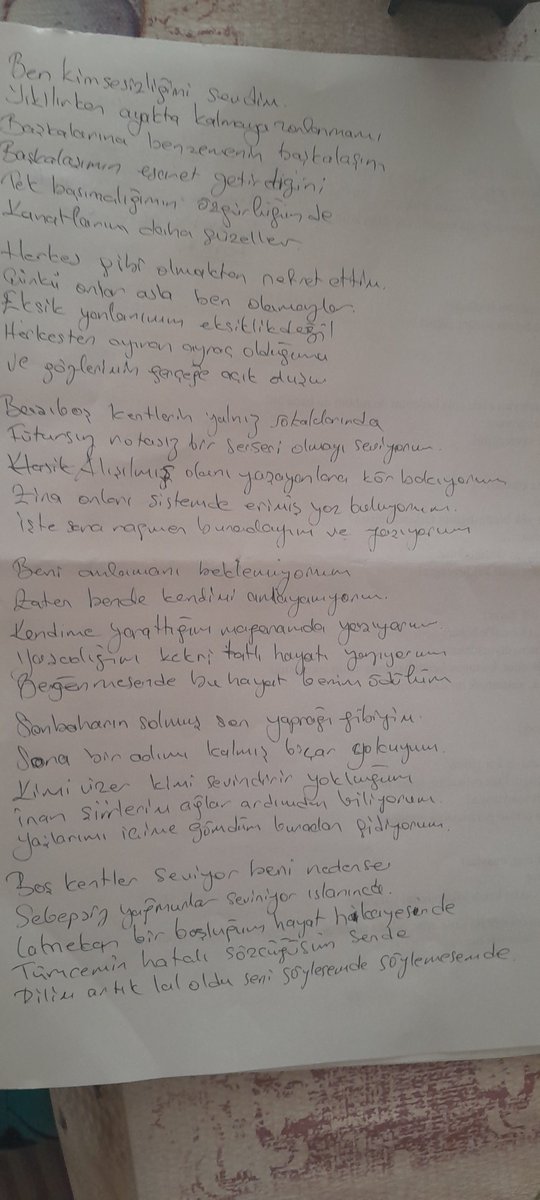 Ben kimsesizliğimi sevdim.
Yıkılırken ayakta kalmaya zorlanmamı
Başkalarına benzemenin başkalaşım
Başkalaşımın esaret getirdiğini
Tek başınalığımın özgürlüğünde
Kanatlarım daha güzeller
Herkes gibi olmaktan nefret ettim.
Çünkü onlar asla ben olamaylar.
Eksik yanlarımın eksiklik değil
Herkesten ayıran ayraç olduğunu
ve gözlerimin gerçeğe açık
Başıboş kentlerin yalnız sokaklarında
Fütursuz notasız bir serseri olmayı seviyorum.
Klasik Alışılmış olanı yaşayanlara kör bakıyorum
Zira onları sistemde erimiş yoz buluyorum.
İşte sana rağmen buradayım ve yazıyorum
Beni anlamanı beklemiyorum
Zaten bende kendimi anlamıyorum.
Kendime yarattığım mağaramda yazıyorum.
Yaşadığım kekri tatlı hayatı yazıyorum
Beğenmesende bu hayat benim ödülüm
Sonbaharın solmuş son yaprağı gibiyim.
Sona bir adımı kalmış biçar yokuyum.
Kimi üzer kimi sevindirir yokluğum
İnan şiirlerim ağlar ardımdan biliyorum.
Yaşlarımı içime gömdüm buradan gidiyorum.
Boş kentler seviyor beni nedense
Sebepsiz yağmurlar seviniyor ıslanınca.
Lamekan bir boşluğum hayat hikayesinde
Tümcemin hatalı sözcüğüsün sende
Dilim artık lal oldu seni söylesemde söylemesemde.